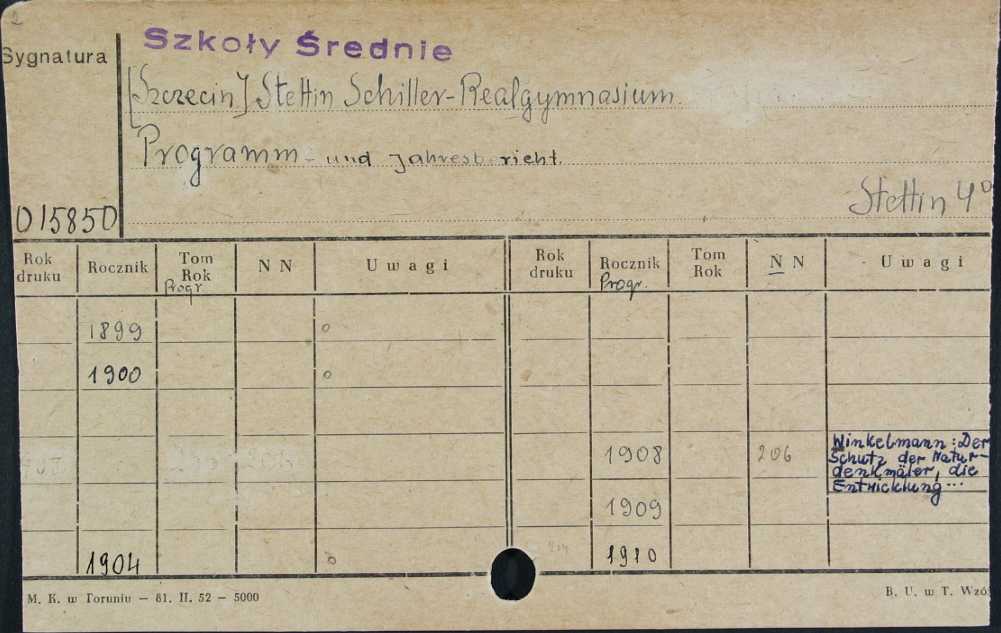 2
Szkoły Średnie
Sygnatura
[Szczecin] Stettin Schiller-Realgymnasium.
Programm - und Jahresbericht.
Stettin 4°
015850
Rok druku Rocznik Tom Rok N N Uwagi Rok druku Rocznik Tom Rok N N Uwagi
Progr. Progr.
1899 o
1900 o
1908 206 Winkelmann: Der
Schutz der Natur-
denkmäler, die
Entwicklung...
1909
1904 o 1910
M. K. w Toruniu — 81. II. 52 — 5000
B. U. w T. Wzó